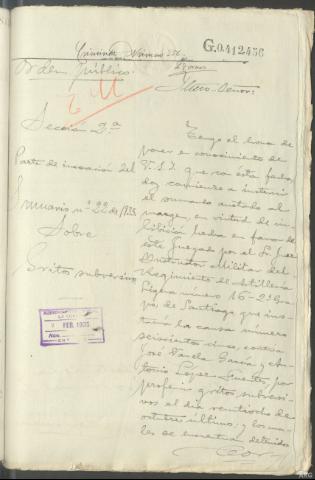 Criminal Número 226
G.0.412456
Orden Público.
Ilmo. Señor:
Sección 2.ª
Parte de incoación del
Sumario nº 22 de 1935
Sobre
Gritos subversivos
FEB. 1935
Tengo el honor de
poner en conocimiento de
V.S.I. que en esta fecha
doy comienzo a instruir
el sumario anotado al
margen, en virtud de in-
hibición hecha en favor de
este Juzgado por el Sr. Juez
Instructor Militar del
Regimiento de Artillería
Ligera número 16-2º Gru-
po de Santiago que ins-
truía la causa número
seiscientos doce, contra
José Varela García y An-
tonio López Fuentes, por
proferir gritos subversi-
vos el día veintiocho de
octubre último, y los cua-
les se encuentran detenidos